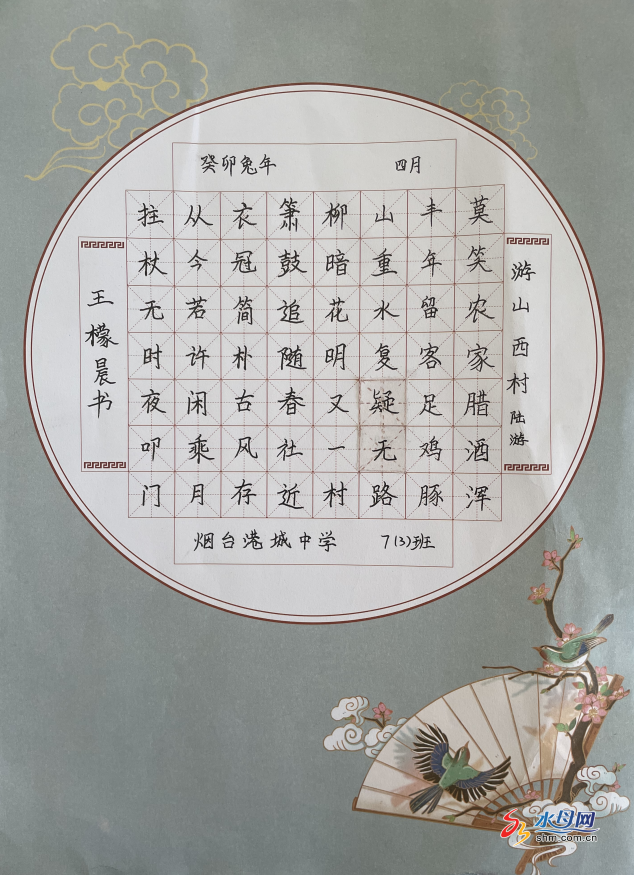 癸卯兔年 四月
游山西村 陆游
莫笑农家腊酒浑
丰年留客足鸡豚
山重水复疑无路
柳暗花明又一村
箫鼓追随春社近
衣冠简朴古风存
从今若许闲乘月
拄杖无时夜叩门
王檬晨书
烟台港城中学 7(3)班
水母网
shm.com.cn